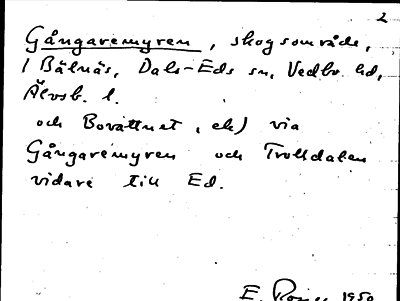 2
Gångaremyren, skogsområde,
/ Bälnäs, Dals-Eds sn, Vedbo hd,
Älvsb. l.
och Bovattnet, ek) via
Gångaremyren och Trolldalen
vidare till Ed.
E. 1950